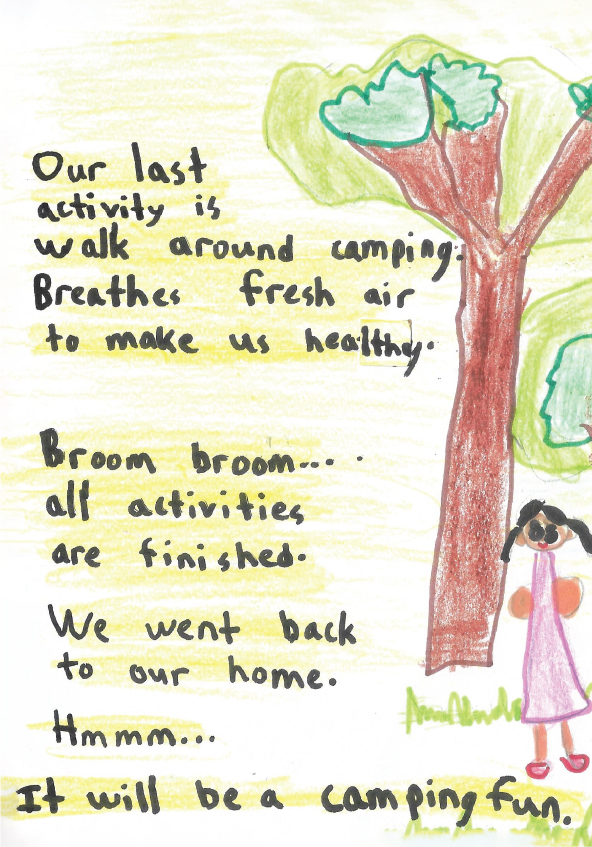 Our last
activity is
walk around camping.
Breathes fresh air
to make us healthy.
Broom broom... .
all activities
are finished.
We went back
to our home.
Hmmm...
It will be a camping fun.